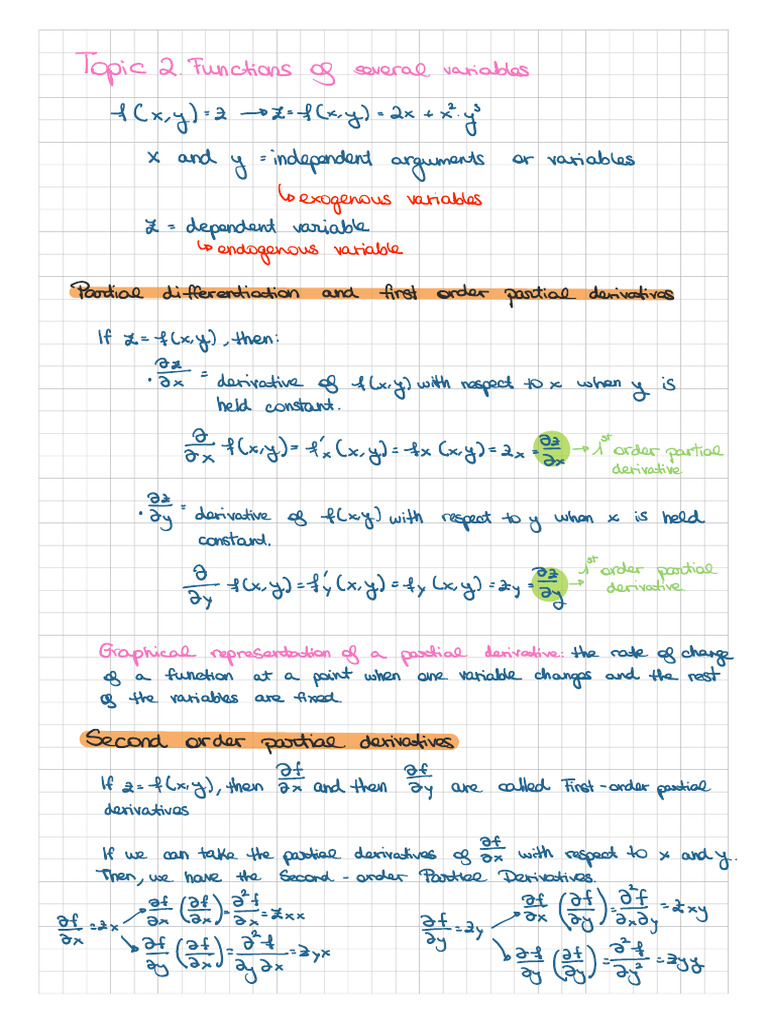 Topic 2. Functions of several variables
f(x,y) = z → z = f(x,y) = 2x + x²·y³
x and y = independent arguments or variables
↳ exogenous variables
z = dependent variable
↳ endogenous variable
Partial differentiation and first order partial derivatives
If z = f(x,y), then:
· ∂z/∂x = derivative of f(x,y) with respect to x when y is
held constant.
∂/∂x f(x,y) = f'x (x,y) = fx (x,y) = zx = ∂z/∂x → 1st order partial
derivative
· ∂z/∂y = derivative of f(x,y) with respect to y when x is held
constant.
∂/∂y f(x,y) = f'y (x,y) = fy (x,y) = zy = ∂z/∂y → 1st order partial
derivative
Graphical representation of a partial derivative: the rate of change
of a function at a point when one variable changes and the rest
of the variables are fixed.
Second order partial derivatives
If z = f(x,y), then ∂f/∂x and then ∂f/∂y are called First-order partial
derivatives
If we can take the partial derivatives of ∂f/∂x with respect to x and y.
Then, we have the Second-order Partial Derivatives.
∂f/∂x = zx → ∂f/∂x (∂f/∂x) = ∂²f/∂x² = zxx
→ ∂f/∂y (∂f/∂x) = ∂²f/∂y∂x = zyx
∂f/∂y = zy → ∂f/∂x (∂f/∂y) = ∂²f/∂x∂y = zxy
→ ∂f/∂y (∂f/∂y) = ∂²f/∂y² = zyy